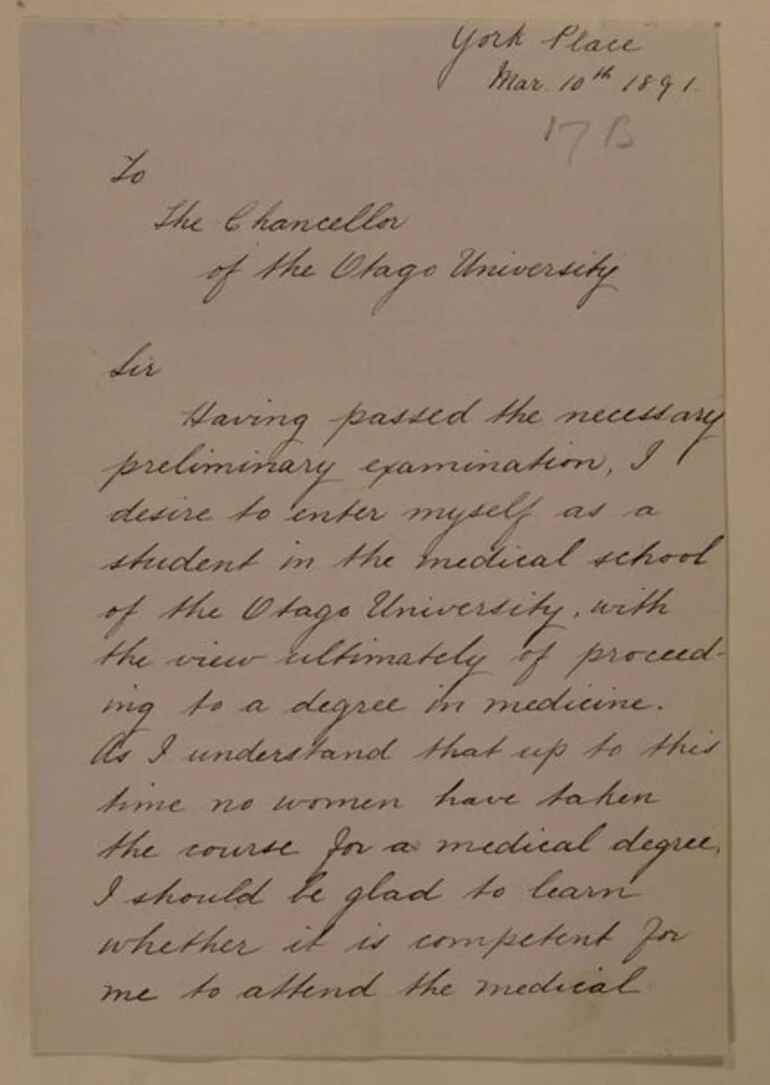 York Place
Mar. 10th 1891.
17 B
To
The Chancellor
of the Otago University
Sir
Having passed the necessary
preliminary examination, I
desire to enter myself as a
student in the medical school
of the Otago University, with
the view ultimately of proceed-
ing to a degree in medicine.
As I understand that up to this
time no women have taken
the course for a medical degree,
I should be glad to learn
whether it is competent for
me to attend the medical